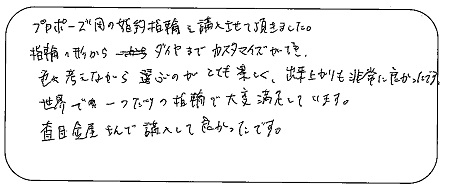 プロポーズ用の婚約指輪を購入させて頂きました。
指輪の形から ダイヤまでカスタマイズができ、
色々考えながら選ぶのがとても楽しく、出来上がりも非常に良かったです。
世界で一つだけの指輪で大変満足しています。
杢目金屋さんで購入して良かったです。